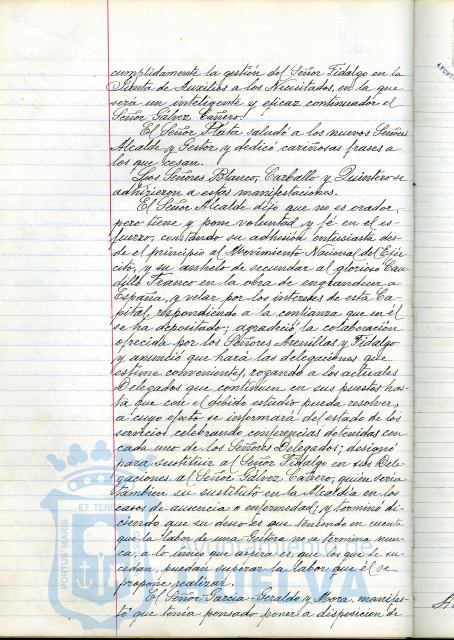 cumplidamente la gestión del Señor Fidalgo en la
Junta de Auxilios a los Necesitados, en la que
será un inteligente y eficaz continuador el
Señor Gálvez Cañero.
El Señor Plata saludó a los nuevos Señores
Alcalde y Gestor y dedicó cariñosas frases a
los que cesan.
Los Señores Blanco, Carballo y Quintero se
adhirieron a estas manifestaciones.
El Señor Alcalde dijo que no es orador,
pero tiene y pone voluntad y fé en el es-
fuerzo, constando su adhesión entusiasta des-
de el principio al Movimiento Nacional del Ejér-
cito, y su anhelo de secundar al glorioso Cau-
dillo Franco en la obra de engrandecer a
España, y velar por los intereses de esta Ca-
pital, respondiendo a la confianza que en él
se ha depositado; agradeció la colaboración
ofrecida por los Señores Arenillas y Fidalgo
y anunció que hará las delegaciones que
estime convenientes, rogando a los actuales
Delegados que continúen en sus puestos has-
ta que con el debido estudio pueda resolver,
a cuyo efecto se informará del estado de los
servicios celebrando conferencias detenidas con
cada uno de los Señores Delegados; designó
para sustituir al Señor Fidalgo en sus Dele-
gaciones al Señor Gálvez Cañero, quien sería
tambien su sustituto en la Alcaldía en los
casos de ausencia o enfermedad; y terminó di-
ciendo que su deseo es que teniendo en cuenta
que la labor de una Gestora no se termina nun-
ca, a lo único que aspira es que los que le su-
cedan, puedan superar la labor que él se
propone realizar.
El Señor García-Geraldo y Mora, manifes-
tó que tenía pensado poner a disposición de
PORTUS MARIS
ET TERR
HUELVA